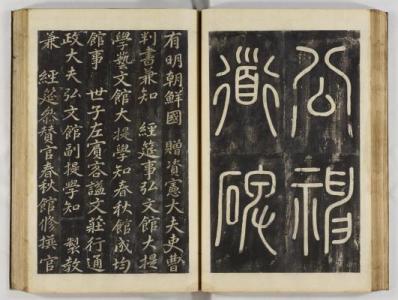 公神
道碑
有明朝鮮國 贈資憲大夫吏曹
判書兼知 經筵事弘文館大提
學藝文館大提學知春秋館成均
館事 世子左賓客諡文莊行通
政大夫弘文館副提學知 製教
兼 經筵參贊官春秋館修撰官